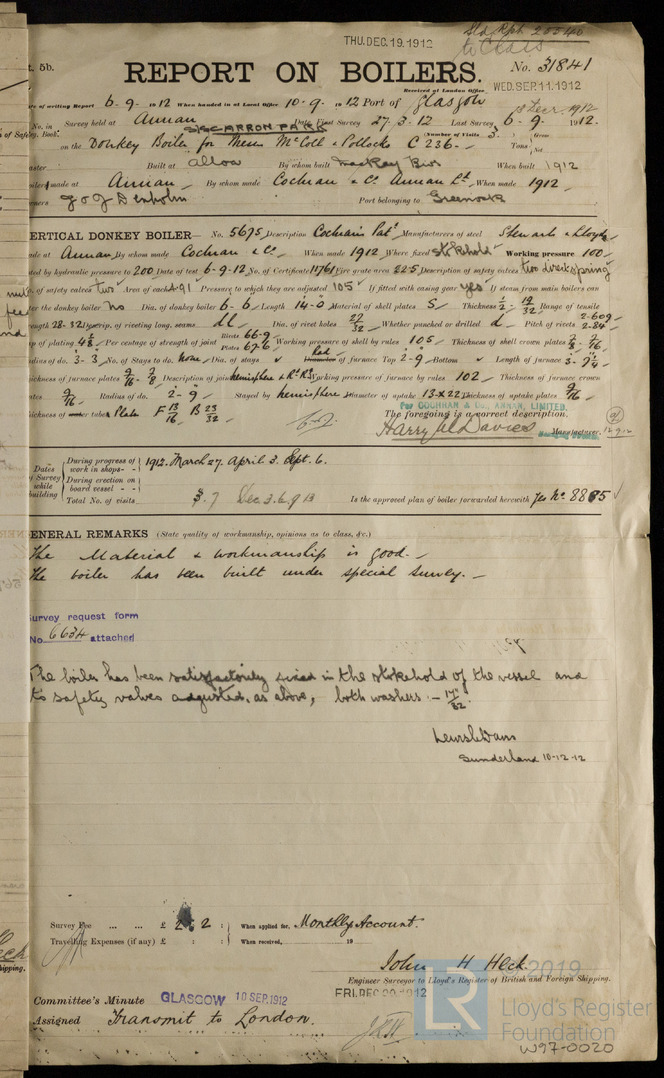 Sld Rpt. 20540
THU.DEC.19.1912
to Class
t. 5b.
REPORT ON BOILERS.
No. 31841
Received at London Office WED.SEP.11.1912
of writing Report 6-9-1912 When handed in at Local Office 10-9-1912 Port of Glasgow
No. in Survey held at Annan Date, First Survey 27.3.12 Last Survey 6-9-1912.
of Safety. Book. (Number of Visits 3.) Gross
SS CARRON PARK
on the Donkey Boiler for Messrs McColl & Pollocks C 236 Tons Net
Built at Alloa By whom built Mackay Bros When built 1912
made at Annan By whom made Cochran & Co. Annan Ld When made 1912
J & J Denholm Port belonging to Greenock
ERTICAL DONKEY BOILER— No. 5675 Description Cochran Patt Manufacturers of steel Stewarts & Lloyds
ade at Annan By whom made Cochran & Co. When made 1912 Where fixed Stokehold Working pressure 100
ted by hydraulic pressure to 200 Date of test 6-9-12 No. of Certificate 11761 Fire grate area 22.5 Description of safety valves two direct spring
. of safety valves two Area of each 4.91 Pressure to which they are adjusted 105 If fitted with easing gear yes If steam from main boilers can
er the donkey boiler No Dia. of donkey boiler 6-6 Length 14-0 Material of shell plates S Thickness 1/2 - 19/32 Range of tensile
ength 28-32 riveting of long. seams dl Dia. of rivet holes 27/32 Whether punched or drilled d Pitch of rivets 2.609 2.84
p of plating 4 3/8 Per centage of strength of joint Rivets 66.9 Plates 67.6 Working pressure of shell by rules 105 Thickness of shell crown plates 7/8 - 9/16
dius of do. 3-3 No. of Stays to do. none Dia. of stays Rad of furnace Top 2-9 Bottom Length of furnace 3-9 1/4
ickness of furnace plates 9/16 - 7/8 Description of joint hemisphere & R. Rd Working pressure of furnace by rules 102 Thickness of furnace crown
ates 9/16 Radius of do. 2-9 Stayed by hemisphere Diameter of uptake 13 x 22 Thickness of uptake plates 9/16
ickness of water tubes Plate F 13/16 B 23/32
For COCHRAN & Co., ANNAN, LIMITED.
The foregoing is a correct description.
Harry M Davies Manufacturer.
12.9.12
Dates of Survey while building
During progress of work in shops - - 1912. March 27. April 3. Sept. 6.
During erection on board vessel - -
Total No. of visits 3. 7 Dec 3. 6. 9. 13 Is the approved plan of boiler forwarded herewith Yes No. 8875
ENERAL REMARKS (State quality of workmanship, opinions as to class, &c.)
The Material & workmanship is good.—
The boiler has been built under special survey.—
Survey request form
No. 6634 attached
The boiler has been satisfactorily fixed in the stokehold of the vessel and
its safety valves adjusted, as above, both washers :— 17/32"
Lewis Davis
Sunderland 10-12-12
Survey Fee ... ... £ 2 : 2 : When applied for, Monthly Account.
Travelling Expenses (if any) £ : : When received, 19
John H Heck
Engineer Surveyor to Lloyd's Register of British and Foreign Shipping.
FRI.DEC.20.1912
Committee's Minute GLASGOW 10 SEP. 1912
Assigned Transmit to London.
LR
© 2019
Lloyd's Register
Foundation
W97-0020